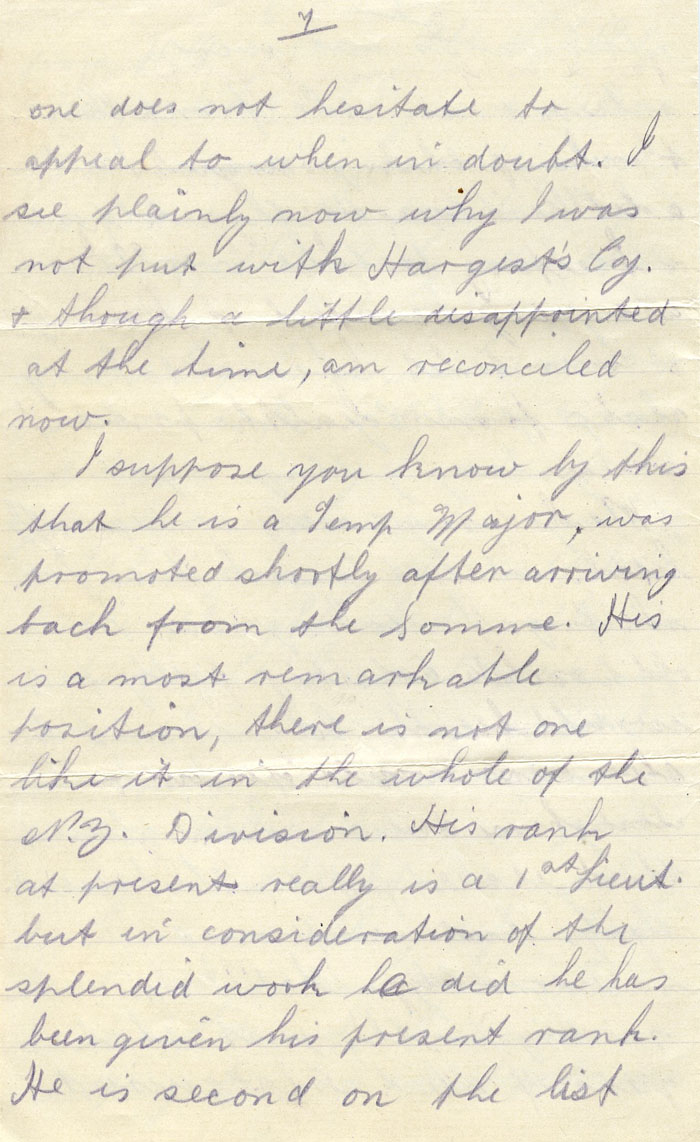 7
one does not hesitate to
appeal to when in doubt. I
see plainly now why I was
not put with Hargest's Coy.
& though a little disappointed
at the time, am reconciled
now.
I suppose you know by this
that he is a Temp Major, was
promoted shortly after arriving
back from the Somme. His
is a most remarkable
position, there is not one
like it in the whole of the
N.Z. Division. His rank
at present really is a 1st Lieut.
but in consideration of the
splendid work he did he has
been given his present rank.
He is second on the list